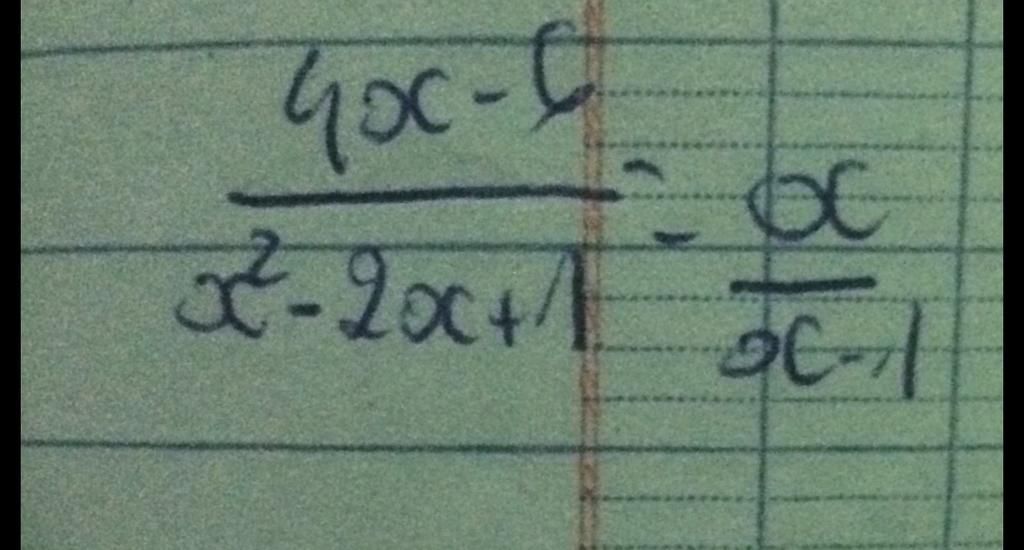 4x-6
x²-2x+1
=
x
x-1